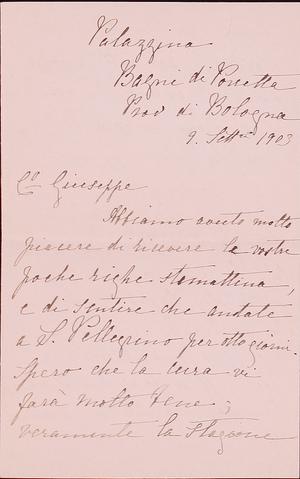 Palazzina
Bagni di Porretta
Prov di Bologna
9. Sett.e 1903
Co Giuseppe
Abbiamo avuto molto
piacere di ricevere le vostre
poche righe stamattina,
e di sentire che andate
a S. Pellegrino per otto giorni.
Spero che la cura vi
farà molto bene;
veramente la stagione